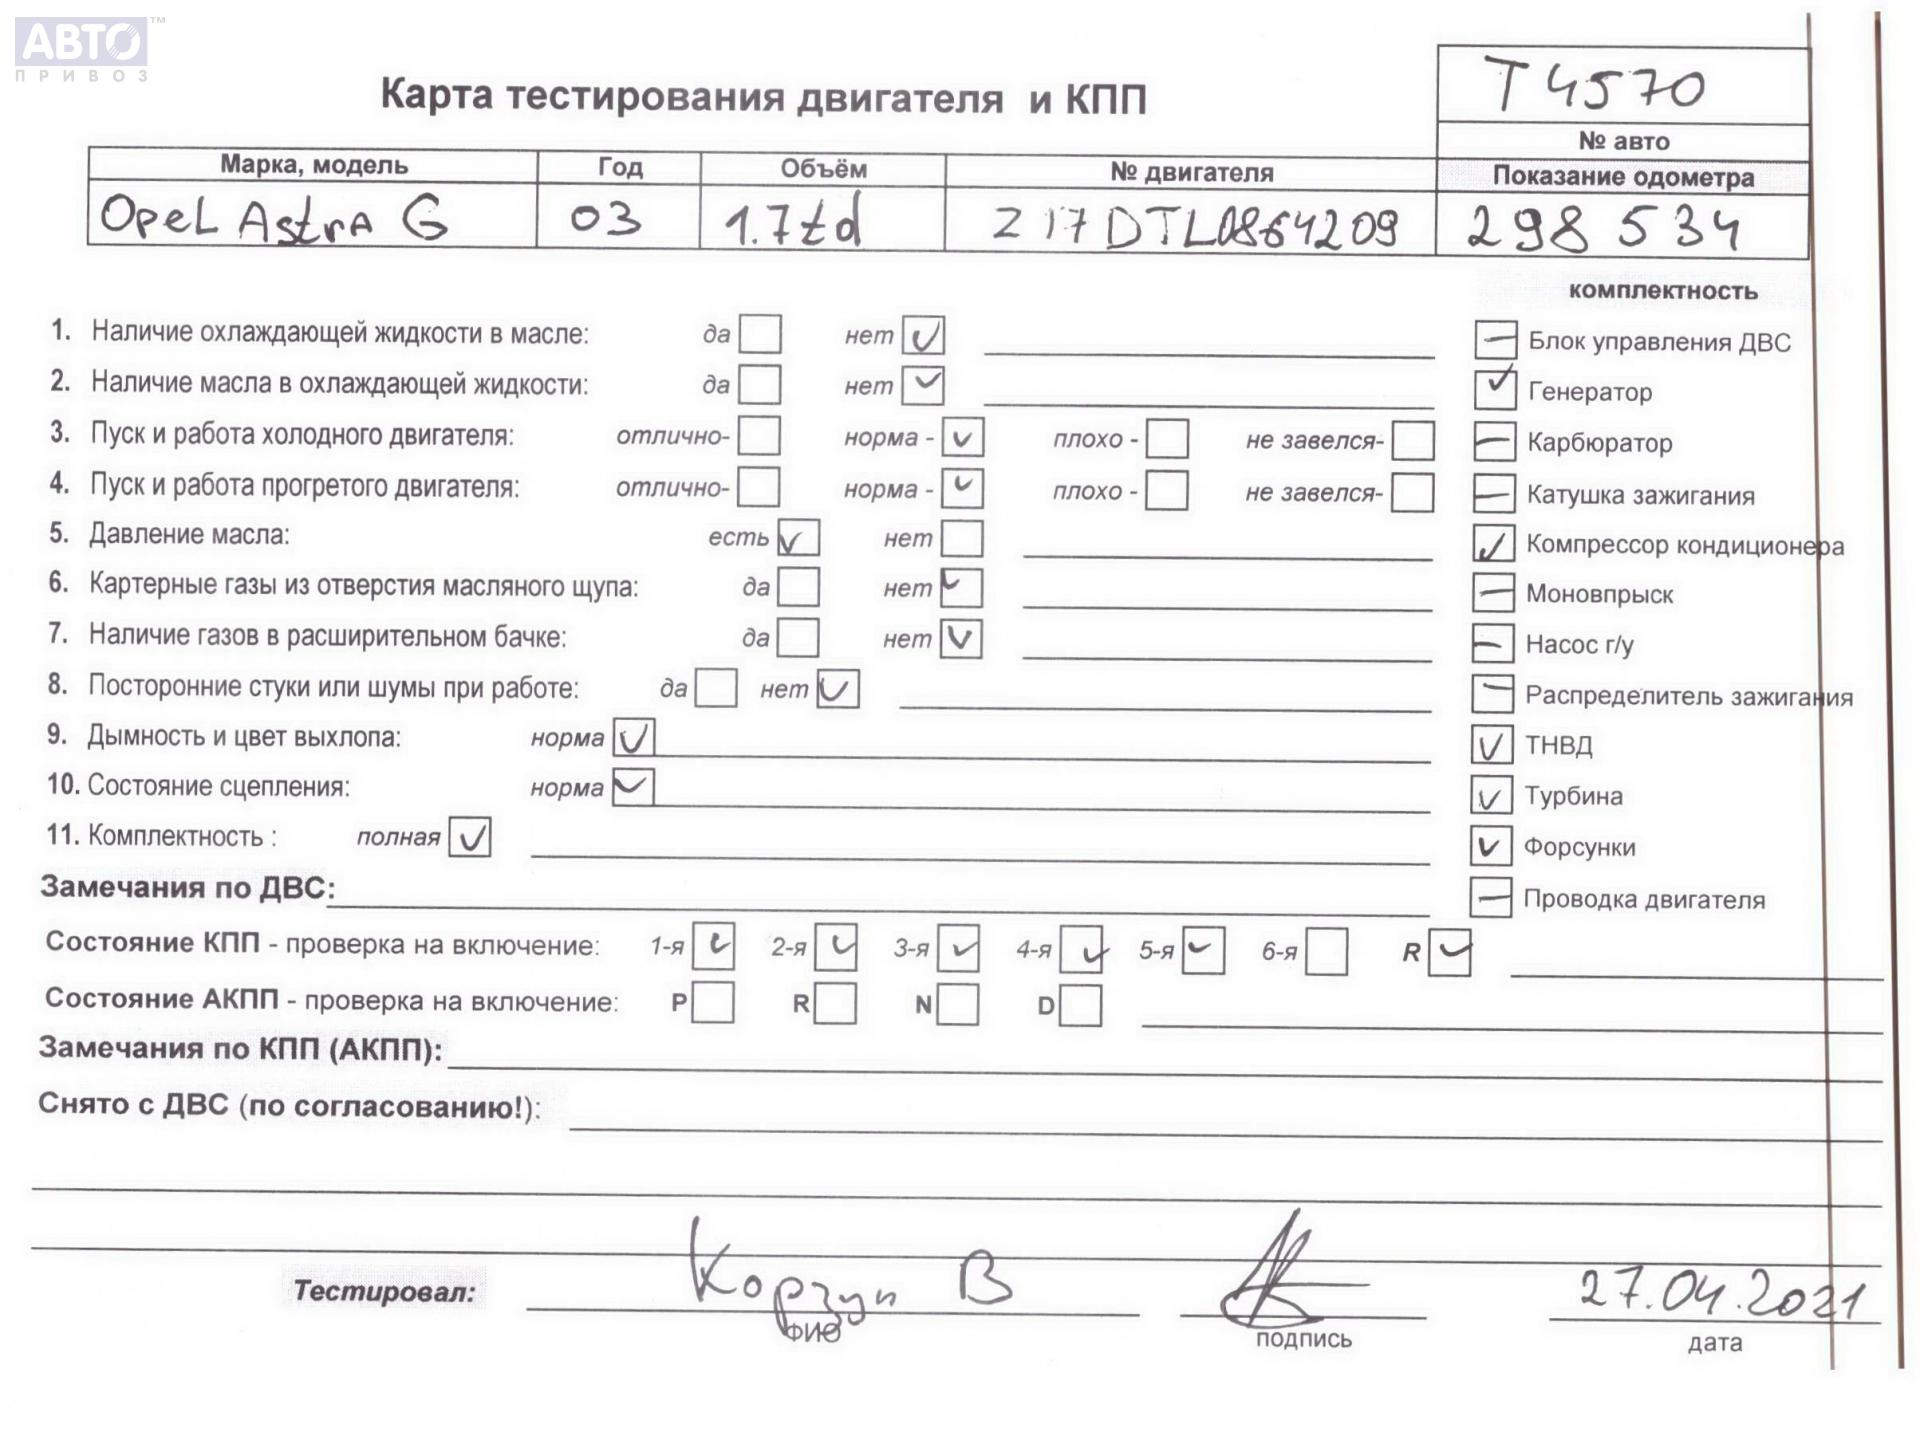 АВТО™
ПРИВОЗ
Карта тестирования двигателя и КПП
T 4570
№ авто
Марка, модель Год Объём № двигателя Показание одометра
Opel Astra G 03 1.7td Z17DTL0864209 298 534
комплектность
1. Наличие охлаждающей жидкости в масле: да нет ✓
2. Наличие масла в охлаждающей жидкости: да нет ✓
3. Пуск и работа холодного двигателя: отлично- норма - ✓ плохо - не завелся-
4. Пуск и работа прогретого двигателя: отлично- норма - ✓ плохо - не завелся-
5. Давление масла: есть ✓ нет
6. Картерные газы из отверстия масляного щупа: да нет ✓
7. Наличие газов в расширительном бачке: да нет ✓
8. Посторонние стуки или шумы при работе: да нет ✓
9. Дымность и цвет выхлопа: норма ✓
10. Состояние сцепления: норма ✓
11. Комплектность : полная ✓
— Блок управления ДВС
✓ Генератор
— Карбюратор
— Катушка зажигания
✓ Компрессор кондиционера
— Моновпрыск
— Насос г/у
— Распределитель зажигания
✓ ТНВД
✓ Турбина
✓ Форсунки
— Проводка двигателя
Замечания по ДВС:
Состояние КПП - проверка на включение: 1-я ✓ 2-я ✓ 3-я ✓ 4-я ✓ 5-я ✓ 6-я R ✓
Состояние АКПП - проверка на включение: P R N D
Замечания по КПП (АКПП):
Снято с ДВС (по согласованию!):
Тестировал: Корзун В 27.04.2021
ФИО подпись дата